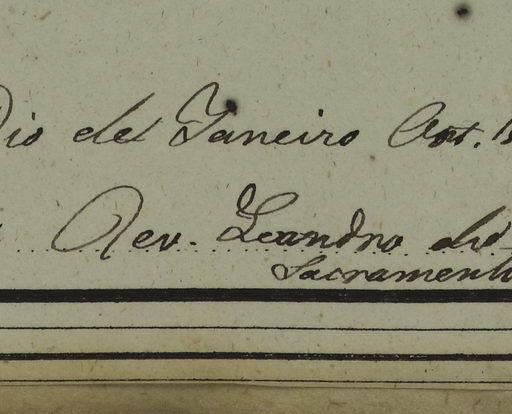 Rio de Janeiro Oct. 18
Rev. Leandro do
Sacramento